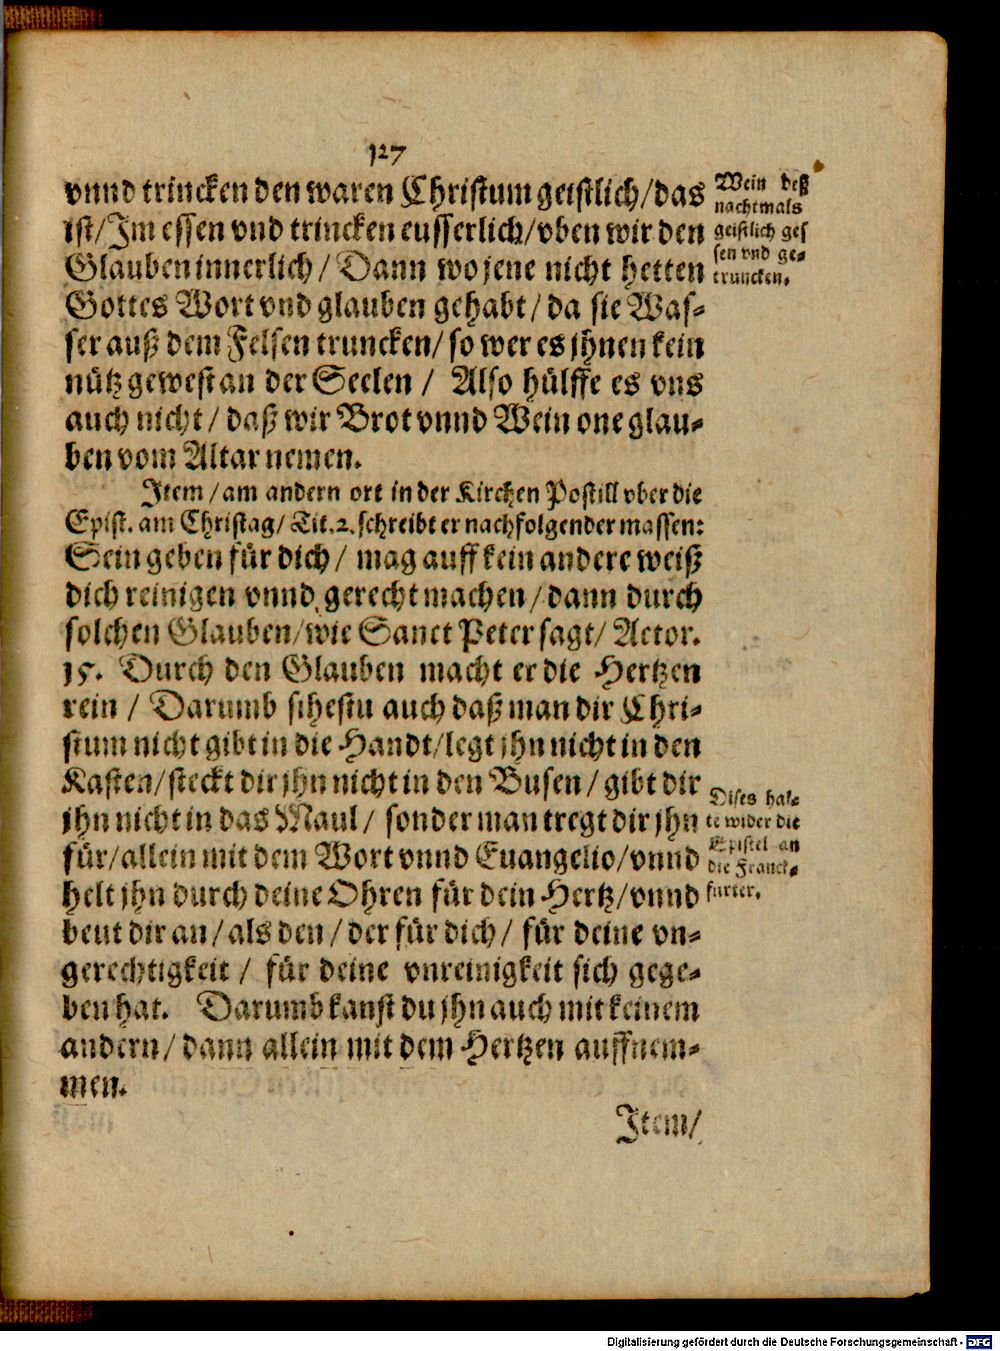 127
vnnd trincken den waren Christum geistlich/das
ist/Im essen vnd trincken eusserlich/vben wir den
Glauben innerlich/ Dann wo jene nicht hetten
Gottes Wort vnd glauben gehabt/ da sie Was-
ser auß dem Felsen truncken/ so wer es jhnen kein
nütz gewest an der Seelen / Also hülffe es vns
auch nicht/ daß wir Brot vnnd Wein one glau-
ben vom Altar nemen.
Item /am andern ort in der Kirchen Postill vber die
Epist. am Christag/ Tit.2. schreibt er nachfolgender massen:
Sein geben für dich/ mag auff kein andere weiß
dich reinigen vnnd gerecht machen/ dann durch
solchen Glauben/wie Sanct Peter sagt/ Actor.
15. Durch den Glauben macht er die Hertzen
rein / Darumb sihestu auch daß man dir Chri-
stum nicht gibt in die Handt/legt jhn nicht in den
Kasten/steckt dir jhn nicht in den Busen/ gibt dir
jhn nicht in das Maul/ sonder man tregt dir jhn
für/allein mit dem Wort vnnd Euangelio/vnnd
helt jhn durch deine Ohren für dein Hertz/vnnd
beut dir an/als den/der für dich/ für deine vn-
gerechtigkeit / für deine vnreinigkeit sich gege-
ben hat. Darumb kanst du jhn auch mit keinem
andern/ dann allein mit dem Hertzen auffnem-
men.
Item/
Wein deß
nachtmals
geistlich ges
sen vnd ge-
truncken.
Dises hal-
te wider die
Epistel an
die Franck-
furter.
Digitalisierung gefördert durch die Deutsche Forschungsgemeinschaft - DFG